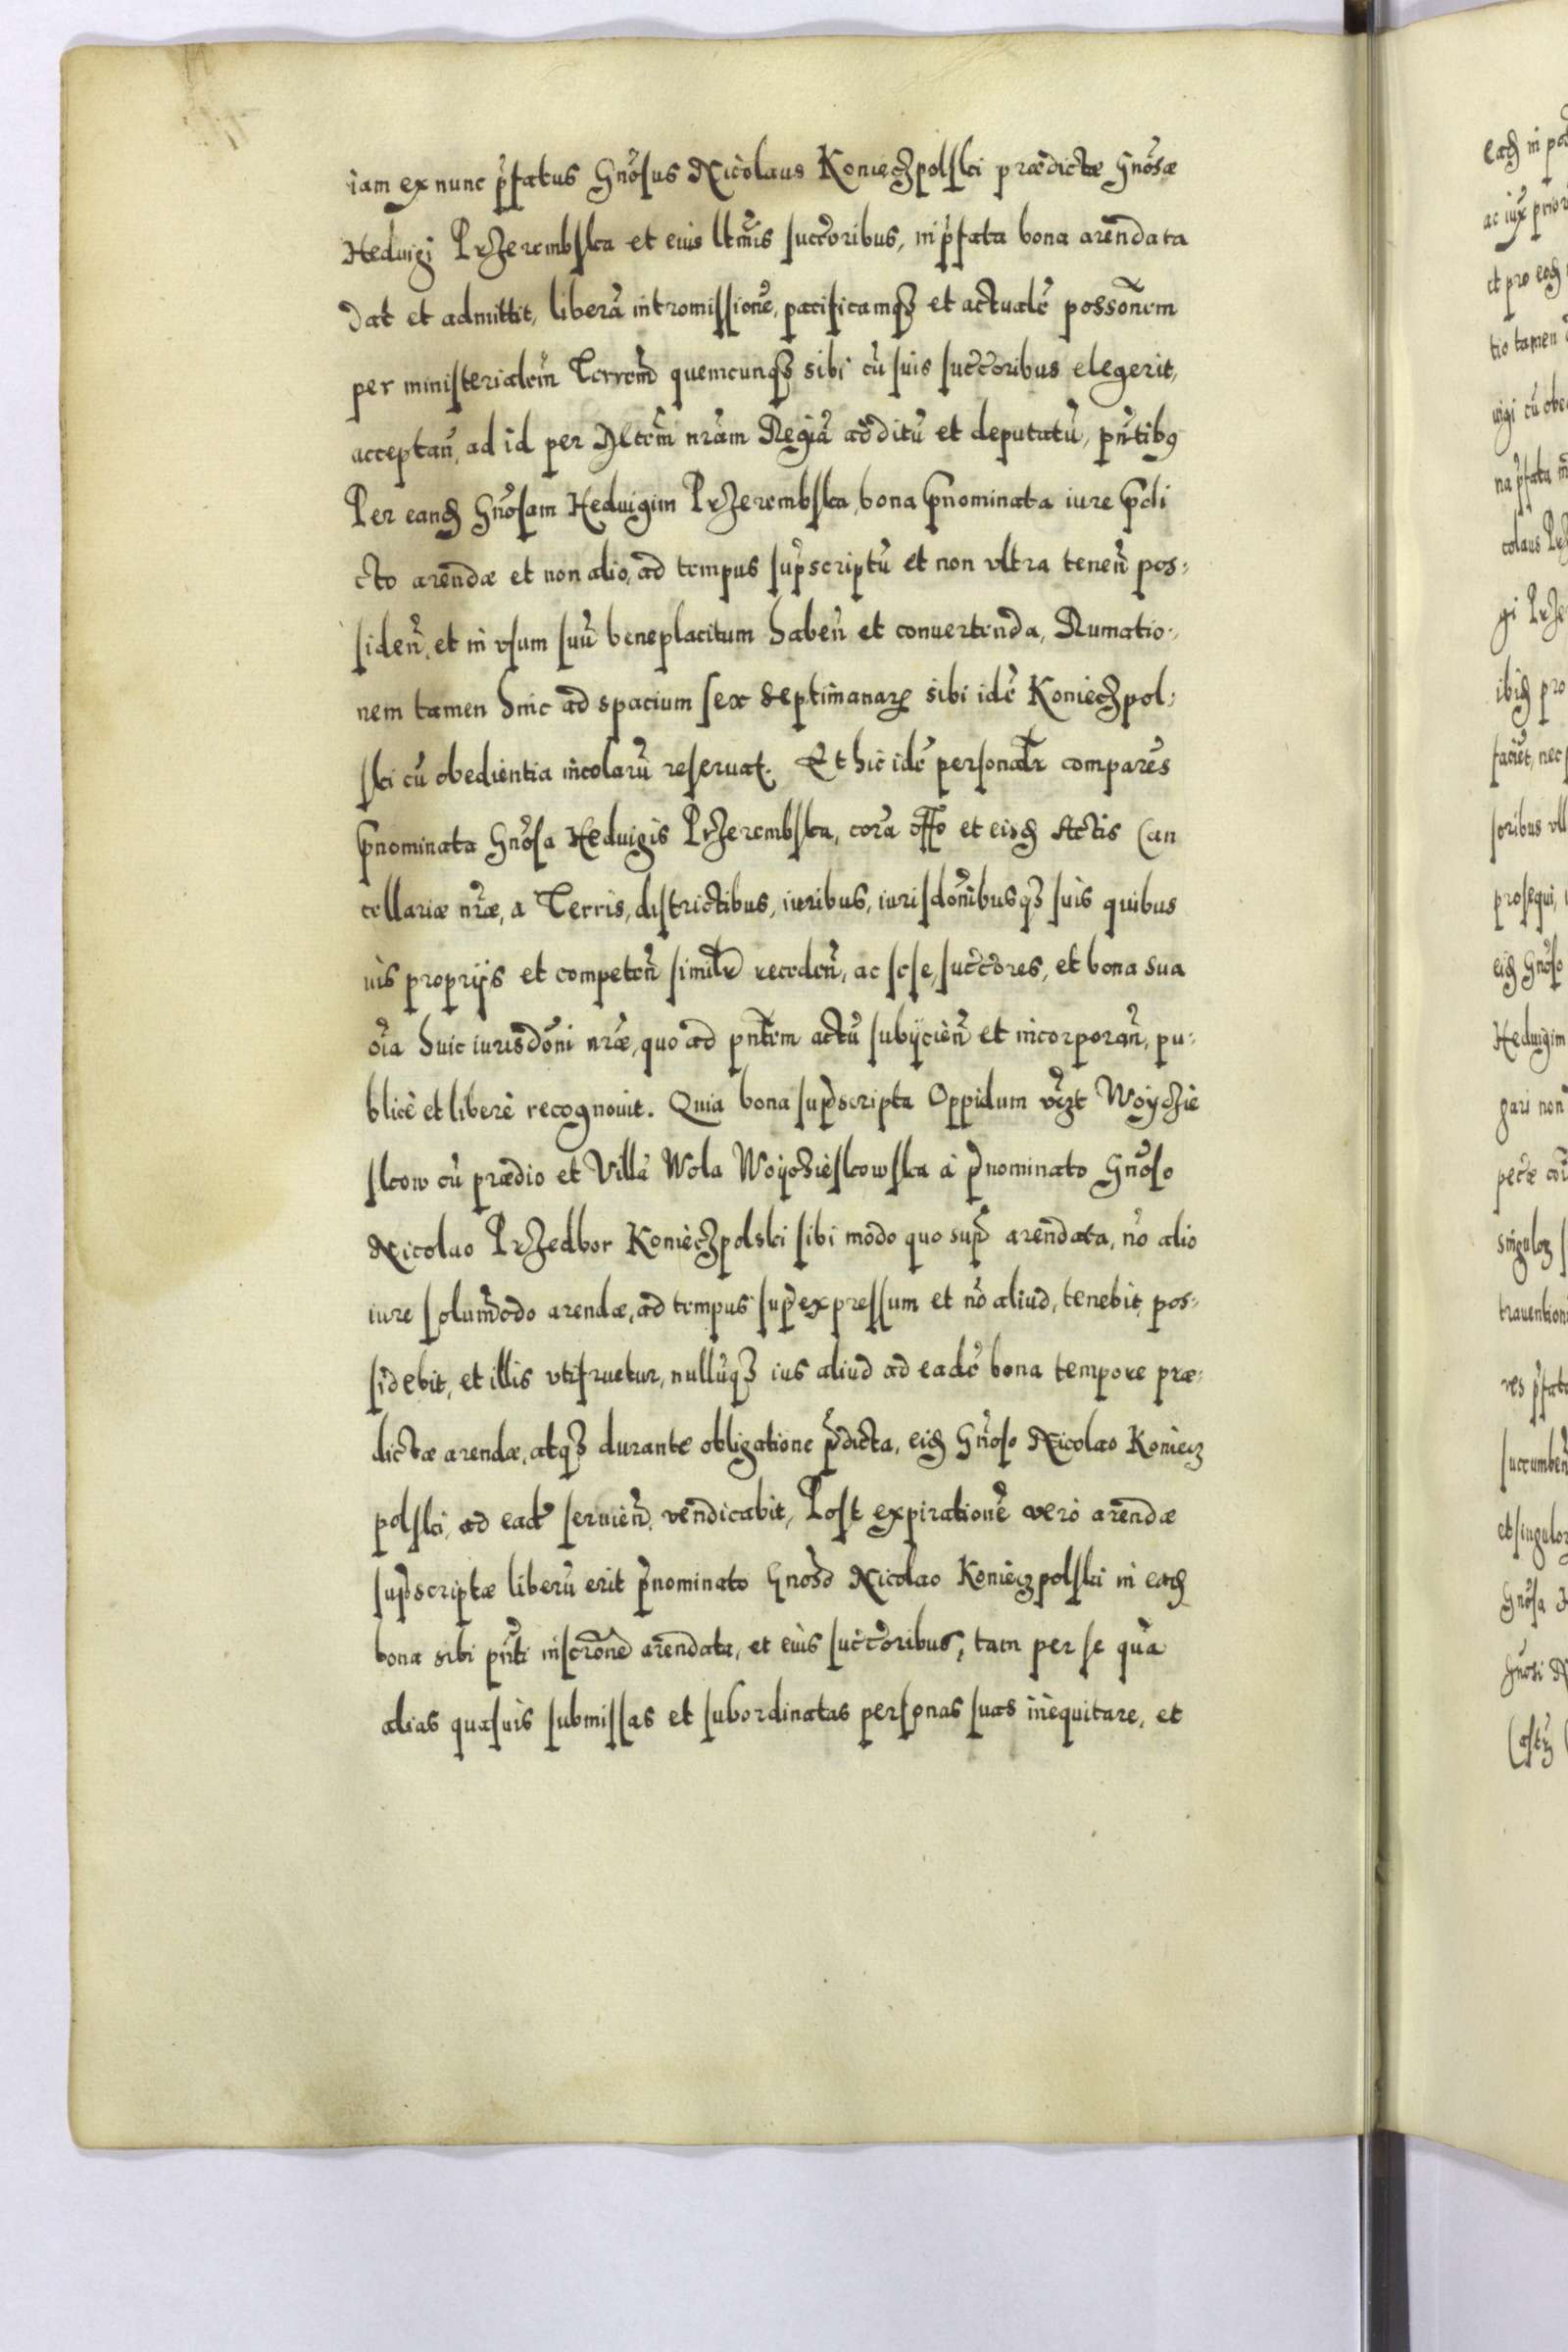 iam ex nunc p̃fatus Gnõsus Nicolaus Konieczpolski prædictæ Gnõsæ
Hedvigi Przerembska et eius ltmĩs succ̃oribus, in p̃fata bona arendata
dat et admittit, liberã intromissionẽ, pacificamqȝ et actualẽ possõnem
per ministerialem̃ Terrem̃ quemcunqȝ sibi cũ suis succ̃oribus elegerit,
acceptañ, ad id per Mtem̃ nr̃am Regiã additũ et deputatũ, pñtibꝰ
Per eandȝ Gnõsam Hedvigim Przerembska, bona p̃nominata iure p̃di
cto arendæ et non alio, ad tempus sup̃scriptũ et non vltra teneñ pos:
sideñ, et in vsum suũ beneplacitum habeñ et convertenda, Rumatio:
nem tamen hinc ad spacium sex septimanaꝝ sibi idẽ Konieczpol:
ski cũ obedientia incolarũ reseruat. Et hic idẽ personalr̃ comparẽs
p̃nominata Gnõsa Hedvigis Przerembska, corã offo et eisdȝ Actis Can
cellariæ nr̃æ, a Terris, districtibus, iuribus, iurisdõnibusqȝ suis quibus
uis proprijs et competeñ similr̃ recedeñ, ac sese, succ̃ores, et bona sua
oĩa huic iurisdõni nr̃æ, quo ad pñtem actũ subijcieñ et incorporañ, pu:
blicè et liberè recognouit. Quia bona sup̃scripta Oppidum vr̃zt Woÿchie
skow cũ prædio et Villa Wola Woÿchieskowska à p̃nominato Gnõso
Nicolao Przedbor Konieczpolski sibi modo quo sup̃ arendata, nõ alio
iure solum̃odo arendæ, ad tempus sup̃expressum et nõ aliud, tenebit, pos:
sidebit, et illis vtifruetur, nullũqȝ ius aliud ad eadẽ bona tempore præ:
dictæ arendæ, atqȝ durante obligatione p̃dicta, eidȝ Gnõso Nicolao Koniecz
polski, ad eadẽ seruieñ, vendicabit, Post expirationẽ verò arendæ
sup̃scriptæ liberũ erit p̃nominato Gnõso Nicolao Koniecz polski in eadȝ
bona sibi pñti inscrõne arendata, et eius succ̃oribus, tam per se quã
alias quasuis submissas et subordinatas personas suas inequitare, et